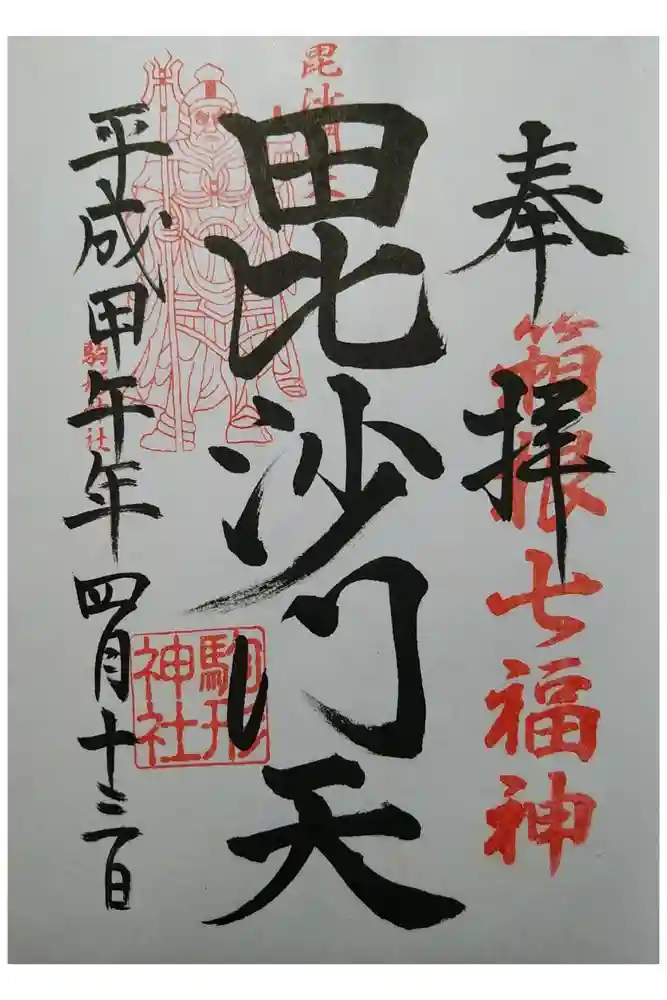 奉拝
箱根七福神
毘沙門天
毘沙門天
駒形神社
平成甲午年四月十三日
駒形神社